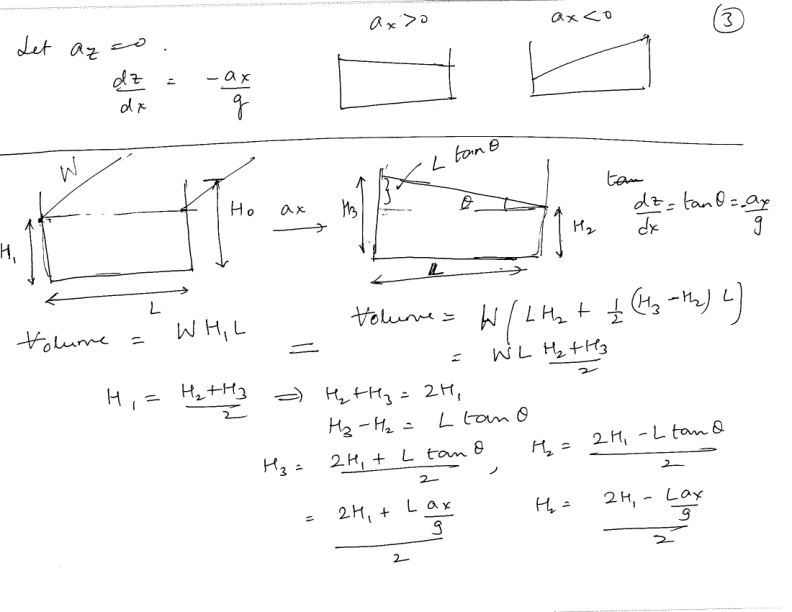 ③
a_x > 0    a_x < 0
Let a_z = 0.
dz/dx = -a_x/g
W
H_1
H_0
L
a_x →
L tan θ
H_3
θ
H_2
L
tan
dz/dx = tan θ = -a_x/g
Volume = W H_1 L = Volume = W (L H_2 + 1/2 (H_3 - H_2) L)
= W L (H_2 + H_3)/2
H_1 = (H_2 + H_3)/2 ⇒ H_2 + H_3 = 2H_1
H_3 - H_2 = L tan θ
H_3 = (2H_1 + L tan θ)/2 , H_2 = (2H_1 - L tan θ)/2
= (2H_1 + L a_x/g)/2    H_2 = (2H_1 - L a_x/g)/2